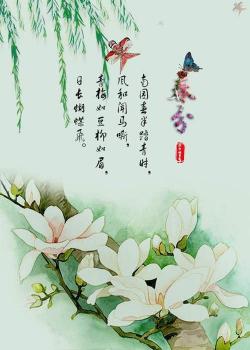 南园春半踏青时，
风和闻马嘶，
青梅如豆柳如眉，
日长蝴蝶飞。